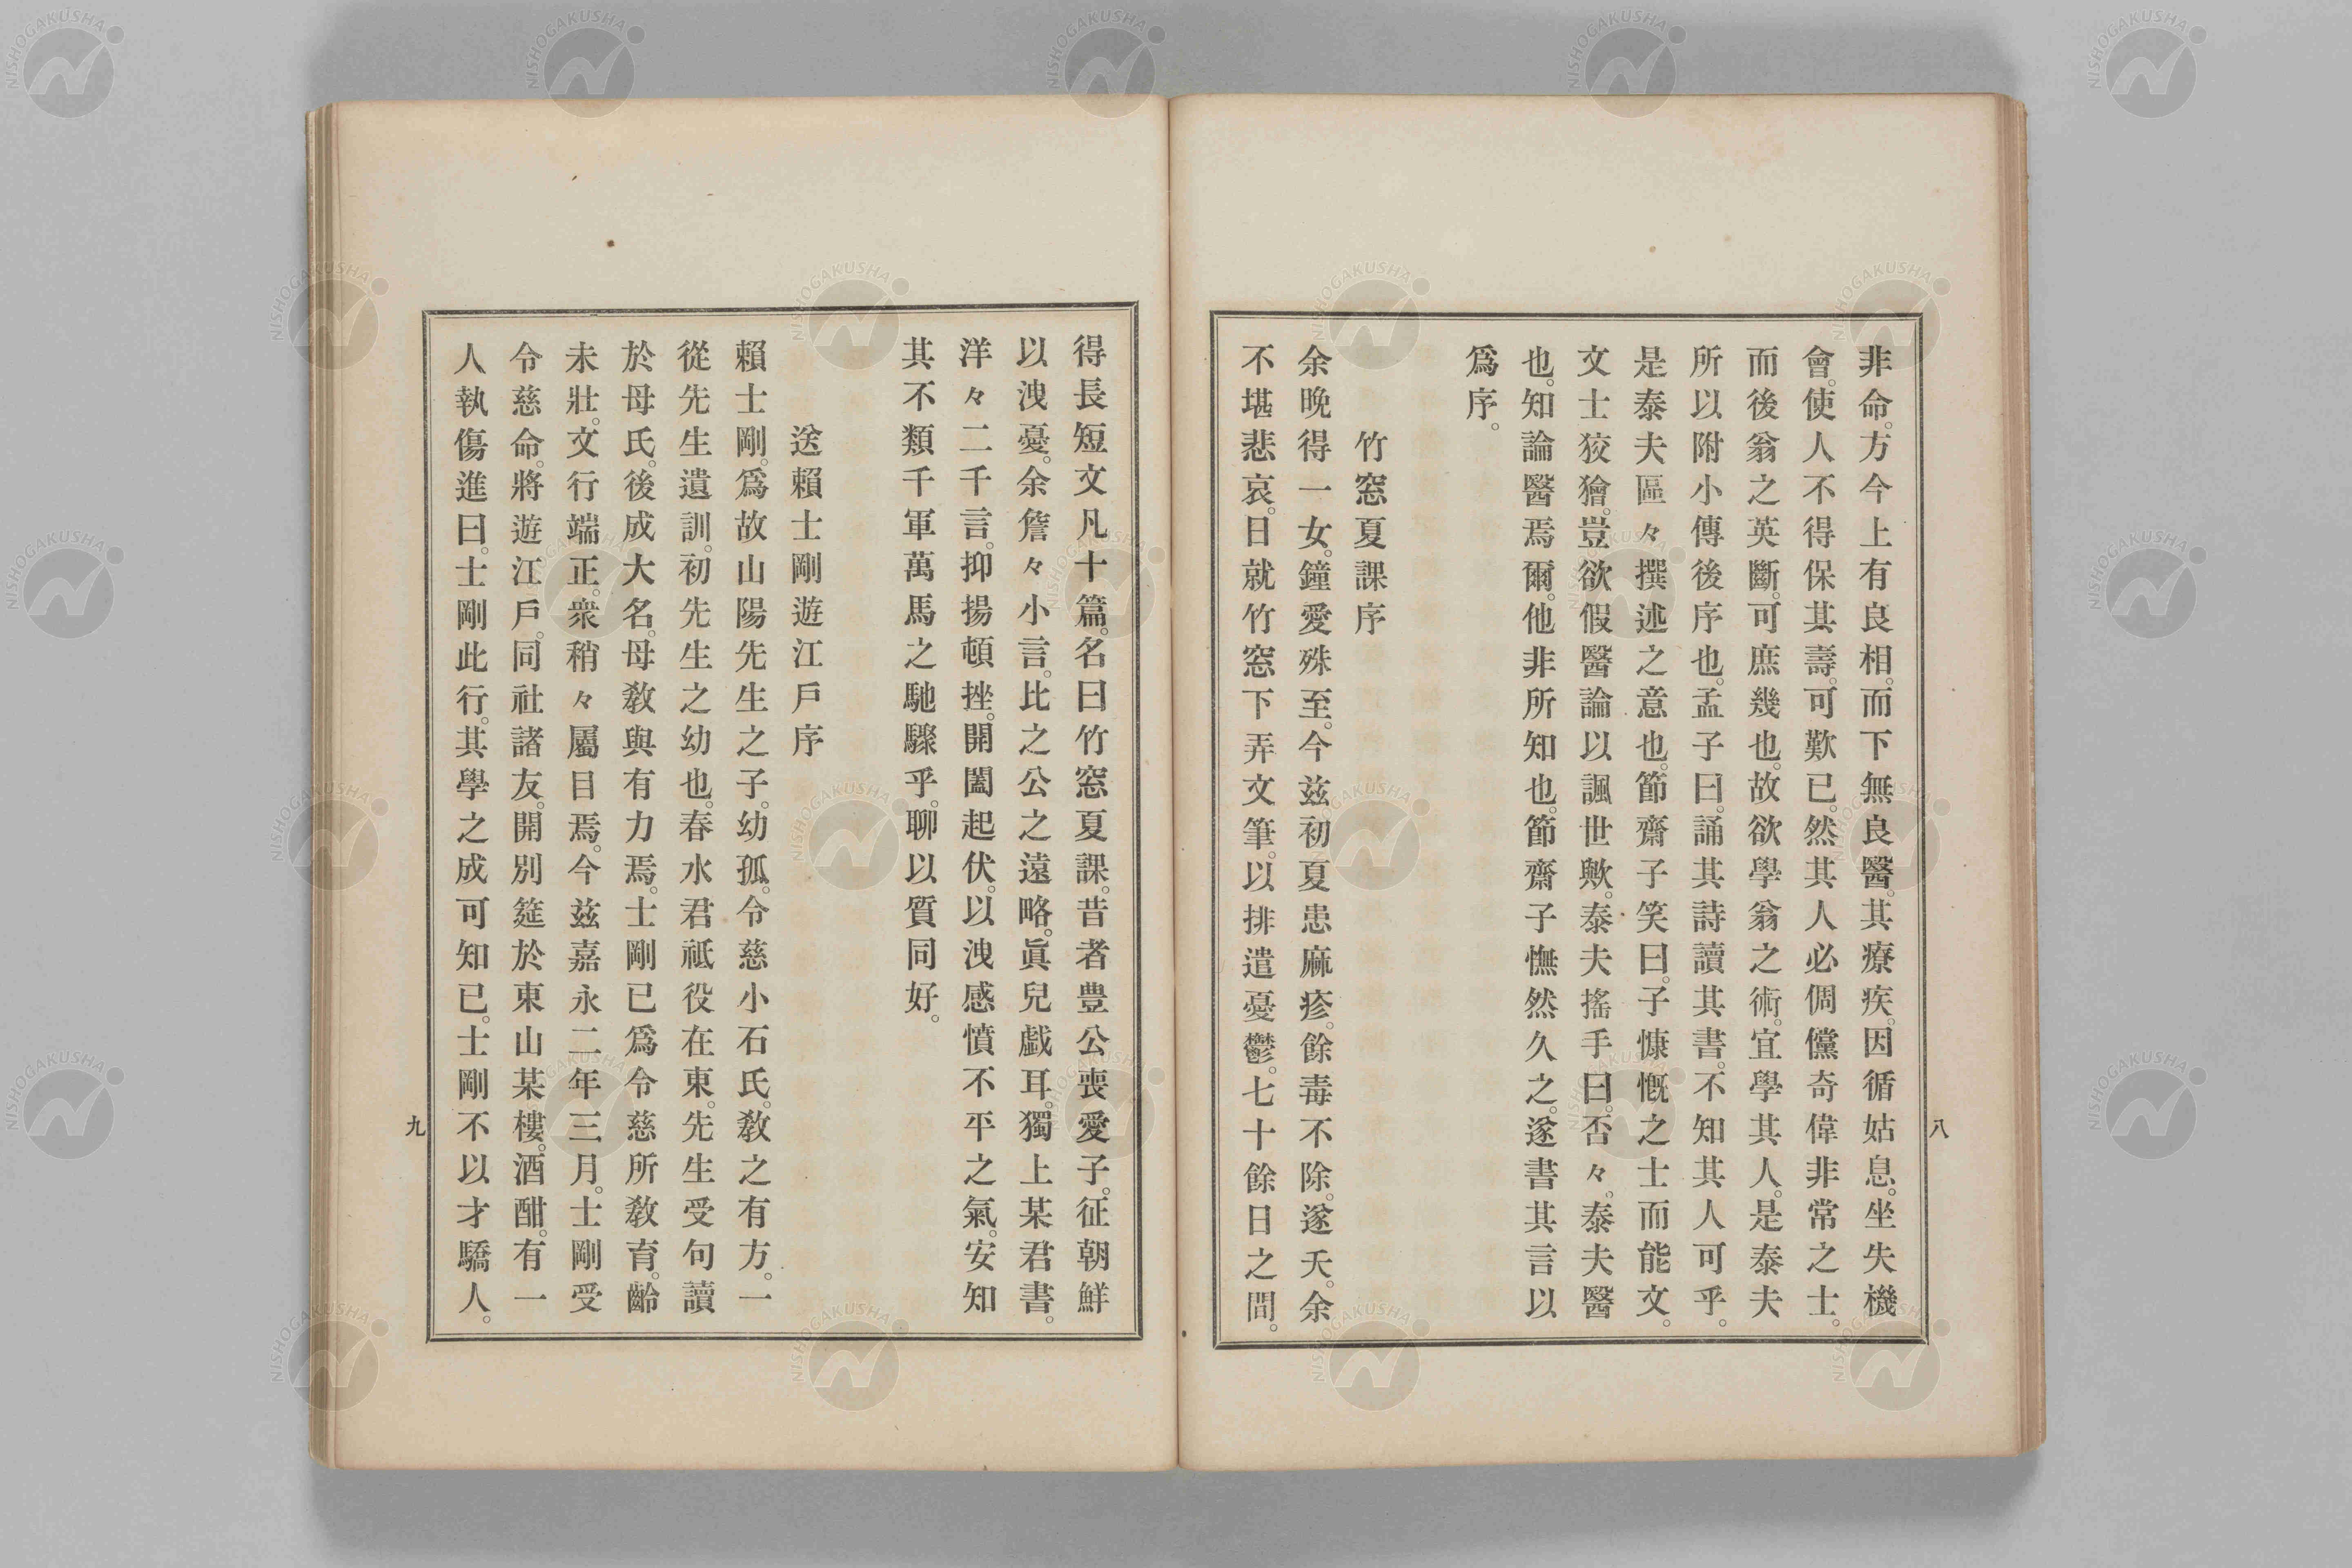 非命。方今上有良相。而下無良醫。其療疾。因循姑息。坐失機
會。使人不得保其壽。可歎已。然其人必倜儻奇偉非常之士。
而後翁之英斷。可庶幾也。故欲學翁之術。宜學其人。是泰夫
所以附小傳後序也。孟子曰。誦其詩讀其書。不知其人可乎。
是泰夫區々撰述之意也。節齋子笑曰。子慷慨之士而能文。
文士狡獪。豈欲假醫論以諷世歟。泰夫搖手曰。否々。泰夫醫
也。知論醫焉爾。他非所知也。節齋子憮然久之。遂書其言以
爲序。
竹窓夏課序
余晩得一女。鐘愛殊至。今玆初夏患麻疹。餘毒不除。遂夭。余
不堪悲哀。日就竹窓下弄文筆。以排遣憂鬱。七十餘日之間。
八
得長短文凡十篇。名曰竹窓夏課。昔者豊公喪愛子。征朝鮮
以洩憂。余詹々小言。比之公之遠略。眞兒戲耳。獨上某君書。
洋々二千言。抑揚頓挫。開闔起伏。以洩感憤不平之氣。安知
其不類千軍萬馬之馳驟乎。聊以質同好。
送賴士剛遊江戶序
賴士剛。爲故山陽先生之子。幼孤。令慈小石氏。敎之有方。一
從先生遺訓。初先生之幼也。春水君祗役在東。先生受句讀
於母氏。後成大名。母敎與有力焉。士剛已爲令慈所敎育。齡
未壯。文行端正。衆稍々屬目焉。今玆嘉永二年三月。士剛受
令慈命。將遊江戶。同社諸友。開別筵於東山某樓。酒酣。有一
人執傷進曰。士剛此行。其學之成可知已。士剛不以才驕人。
九
NISHOGAKUSHA